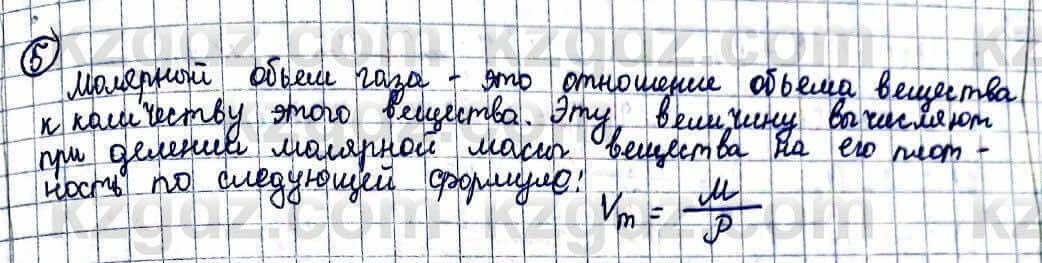 5
Молярный объем газа - это отношение объема вещества
к количеству этого вещества. Эту величину вычисляют
при делении молярной массы вещества на его плот-
ность по следующей формуле:
Vm = M/ρ
kzgdz.com